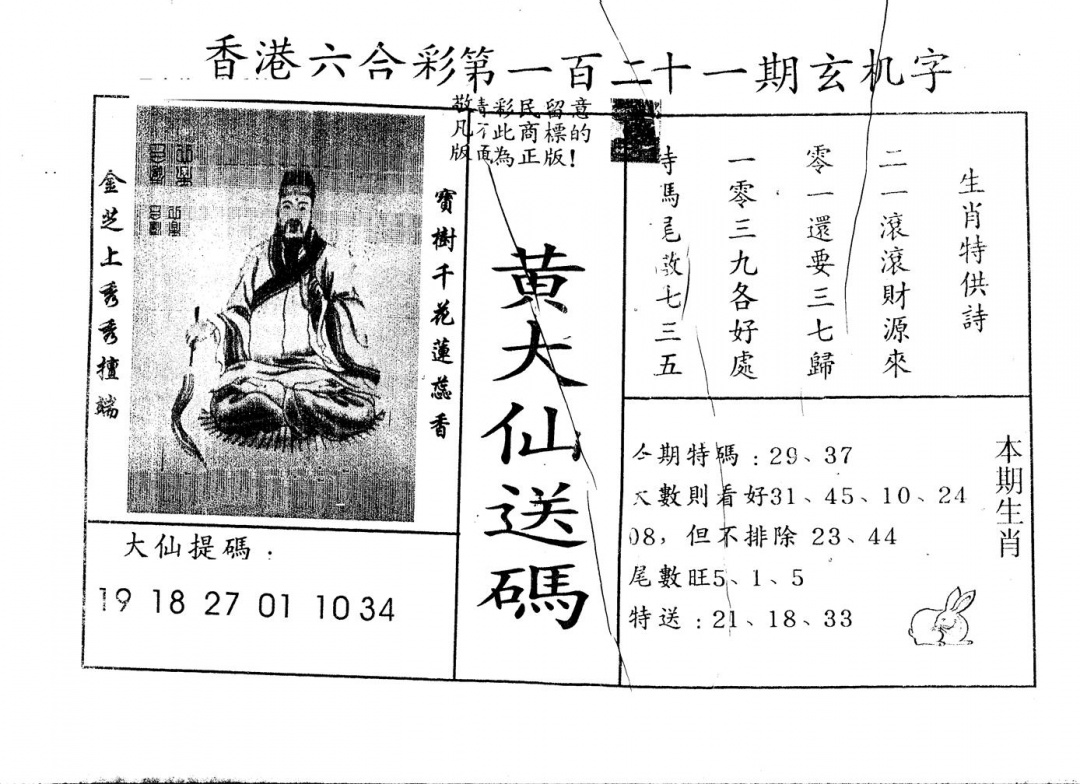 香港六合彩第一百二十一期玄机字
敬請彩民留意
凡有此商標的
版面為正版!
寶樹千花蓮蕊香
金芝上秀秀擅端
黄大仙送碼
生肖特供詩
二一滾滾財源來
零一還要三七歸
一零三九各好處
特馬尾敬七三五
大仙提碼:
19 18 27 01 10 34
本期生肖
今期特碼:29、37
大數則看好31、45、10、24
08，但不排除 23、44
尾數旺5、1、5
特送:21、18、33